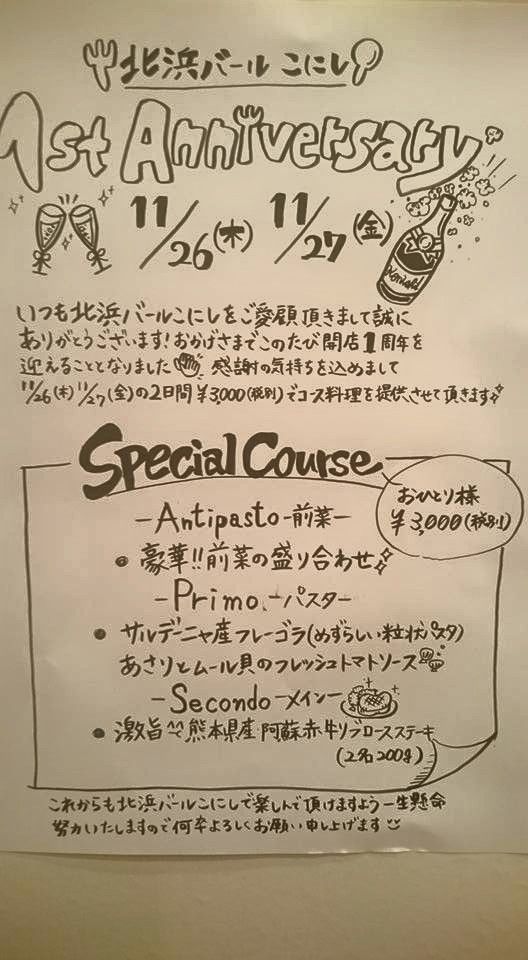 北浜バール こにし
1st Anniversary
11/26(木) 11/27(金)
いつも北浜バールこにしをご愛顧頂きまして誠に
ありがとうございます！おかげさまでこのたび開店1周年を
迎えることとなりました 感謝の気持ちを込めまして
11/26(木)11/27(金)の2日間¥3,000(税別)でコース料理を提供させて頂きます
Special Course
おひとり様
¥3,000(税別)
-Antipasto-前菜-
● 豪華!!前菜の盛り合わせ
-Primo-パスター
● サルデーニャ産フレーゴラ(めずらしい粒状パスタ)
あさりとムール貝のフレッシュトマトソース
-Secondo-メイン-
● 激旨 熊本県産 阿蘇赤牛リブロースステーキ
(2名200g)
これからも北浜バールこにしで楽しんで頂けますよう一生懸命
努力いたしますので何卒よろしくお願い申し上げます